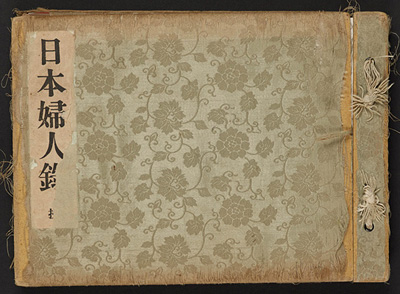 日本婦人錄